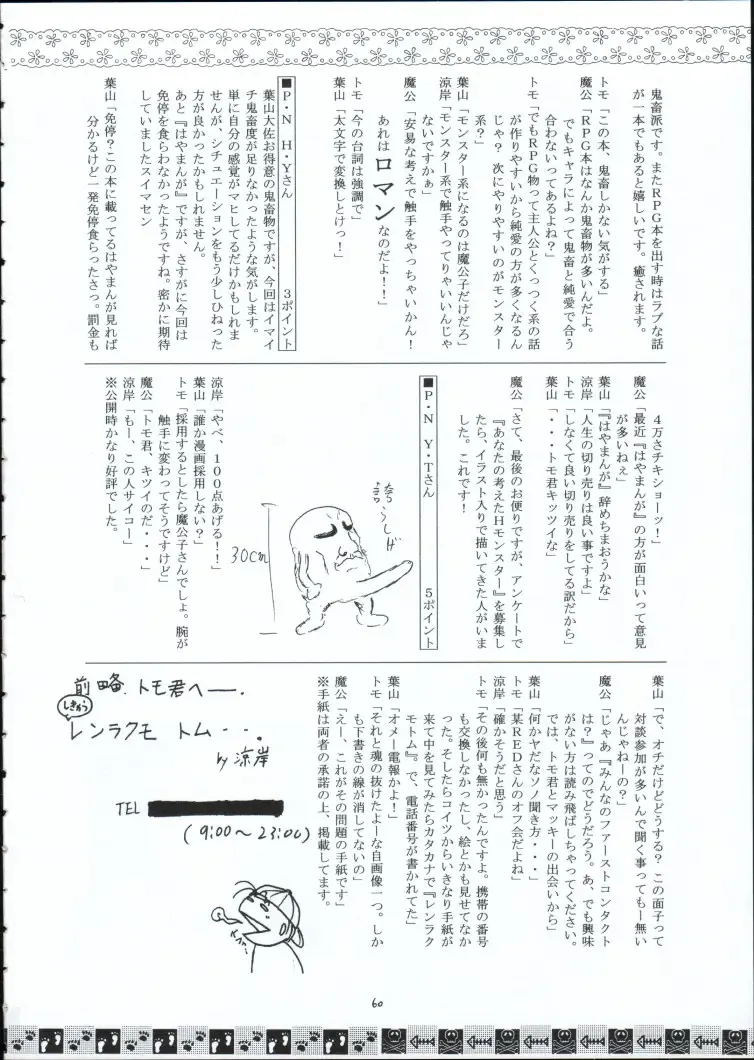 鬼畜派です。またRPG本を出す時はラブな話
が一本でもあると嬉しいです。癒されます。
トモ「この本、鬼畜しかない気がする」
魔公「RPG本はなんか鬼畜物が多いんだよ。
でもキャラによって鬼畜と純愛で合う
合わないってあるよね？」
トモ「でもRPG物って主人公とくっつく系の話
が作りやすいから純愛の方が多くなるん
じゃ？次にやりやすいのがモンスター
系？」
葉山「モンスター系になるのは魔公子だけだろ」
涼岸「モンスター系で触手やってりゃいいんじゃ
ないですかぁ」
魔公「安易な考えで触手をやっちゃいかん！
あれはロマンなのだよ！！」
トモ「今の台詞は強調で」
葉山「太文字で変換しとけっ！」
■P・N　H・Yさん　3ポイント
葉山大佐お得意の鬼畜物ですが、今回はイマイ
チ鬼畜度が足りなかったような気がします。
単に自分の感覚がマヒしてるだけかもしれま
せんが、シチュエーションをもう少しひねった
方が良かったかもしれません。
あと『はやまんが』ですが、さすがに今回は
免停を食らわなかったようですね。密かに期待
していましたスイマセン
葉山「免停？この本に載ってるはやまんが見れば
分かるけど一発免停食らったさっ。罰金も
4万さチキショーッ！」
魔公「最近『はやまんが』の方が面白いって意見
が多いねぇ」
葉山「『はやまんが』辞めちまおうかな」
涼岸「人生の切り売りは良い事ですよ」
トモ「しなくて良い切り売りをしてる訳だから」
葉山「・・・トモ君キッツイな」
魔公「さて、最後のお便りですが、アンケートで
『あなたの考えたHモンスター』を募集し
たら、イラスト入りで描いてきた人がいま
した。これです！
■P・N　Y・Tさん　5ポイント
誇らしげ
30cm
涼岸「やべ、100点あげる！！」
葉山「誰か漫画採用しない？」
トモ「採用するとしたら魔公子さんでしょ。腕が
触手に変わってそうですけど」
魔公「トモ君、キツイのだ・・・」
涼岸「もー、この人サイコー」
※公開時かなり好評でした。
葉山「で、オチだけどどうする？この面子って
対談参加が多いんで聞く事ってもー無い
んじゃねーの？」
魔公「じゃあ『みんなのファーストコンタクト
は？』ってのでどうだろう。あ、でも興味
がない方は読み飛ばしちゃってください。
では、トモ君とマッキーの出会いから」
葉山「何かヤだなソノ聞き方・・・」
トモ「某REDさんのオフ会だよね」
涼岸「確かそうだと思う」
トモ「その後何も無かったんですよ。携帯の番号
も交換しなかったし、絵とかも見せてなか
った。そしたらコイツからいきなり手紙が
来て中を見てみたらカタカナで『レンラク
モトム』。で、電話番号が書かれてた」
葉山「オメー電報かよ！」
トモ「それと魂の抜けたよーな自画像一つ。しか
も下書きの線が消してないの」
魔公「えー、これがその問題の手紙です」
※手紙は両者の承諾の上、掲載してます。
前略、トモ君へ――。
しきゅう
レンラクモトム・・・。
by 涼岸
TEL
(9:00～23:00)
60